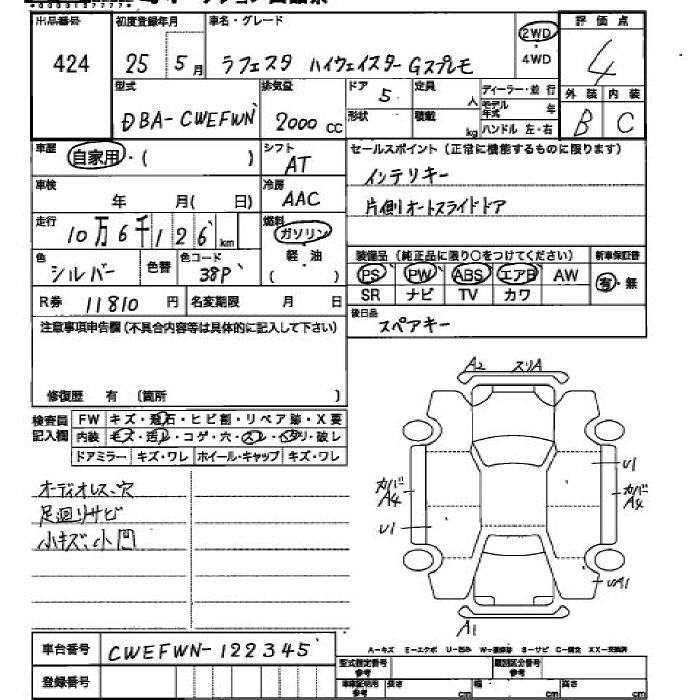 出品番号 初度登録年月 車名・グレード 評価点
424 25 5月 ラフェスタ ハイウェイスター Gスプレモ 2WD・4WD 4
型式 排気量 ドア 5 定員 人 ディーラー・並行 外装 内装
DBA-CWEFWN 2000cc 形状 積載 kg モデル年式 年 ハンドル 左・右 B C
車歴 自家用・( ) シフト AT セールスポイント(正常に機能するものに限ります)
車検 年 月( 日) 冷房 AAC インテリキー
片側オートスライドドア
走行 10万6千126km 燃料 ガソリン 軽油 ( )
色 シルバー 色替 色コード 38P 装備品(純正品に限り○をつけてください) 新車保証書
PS PW ABS エアB AW 有・無
R券 11810円 名変期限 月 日 SR ナビ TV カワ
注意事項申告欄(不具合内容等は具体的に記入して下さい) 後日品 スペアキー
修復歴 有 〔箇所 〕
検査員記入欄 FW キズ・飛石・ヒビ割・リペア跡・X要
内装 キズ・汚レ・コゲ・穴・スレ・ヘタリ・破レ
ドアミラー キズ・ワレ ホイール・キャップ キズ・ワレ
A2 スリA
オーディオレス、穴
足廻リサビ
小キズ、小凹
U1
カバーA4 カバーA4
U1
UA1
A1
車台番号 CWEFWN-122345
A-キズ E-エクボ U-凹み W-補修跡 S-サビ C-腐食 XX-交換済
登録番号 型式指定番号参考 類別区分番号参考
車庫証明用参考 長さ cm 幅 cm 高さ cm